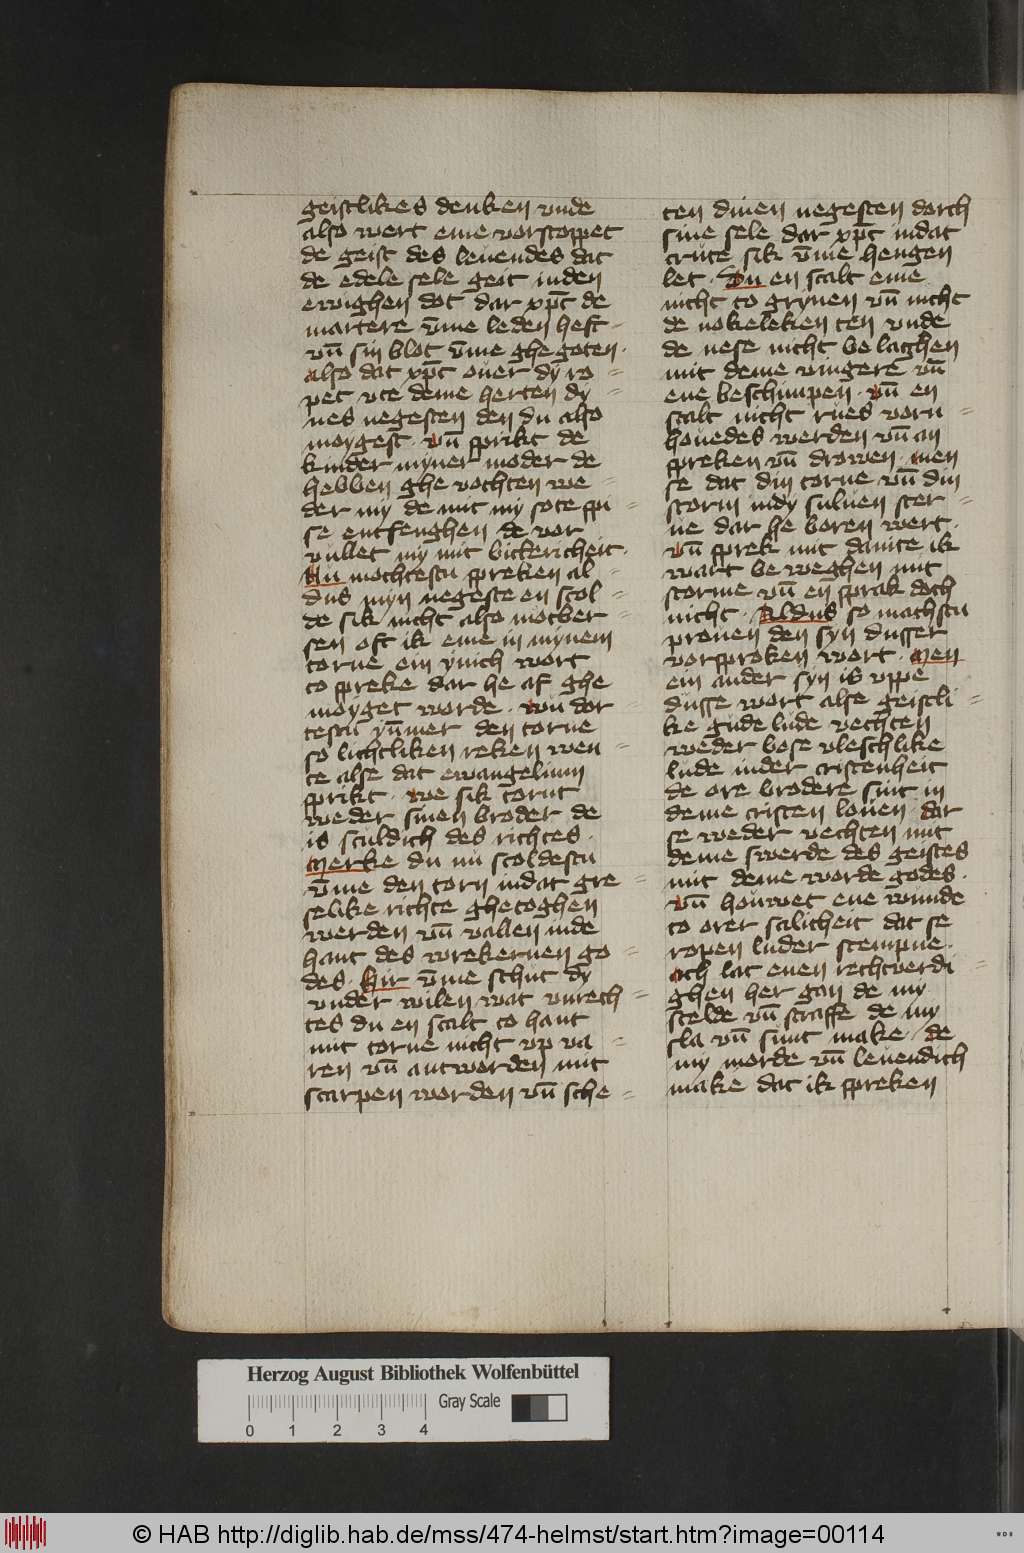 geistlikes denken vnde
also wert eme vorstoppet
de geist des leuendes dat
de edele sele geit inden
ewighen dot dar xpc̄ de
martere v̄me leden heft
vn̄ sin blot v̄me ghe goten ·
also dat xpc̄ ouer dy ro =
pet vte deme herten dy =
nes negesten den du also
moygest · vn̄ sprikt de
kinder myner moder de
hebben ghe vochten we =
der my de mit my sote spi =
se entfenghen de vor
vullet my mit bittericheit ·
Nu mochtestu spreken al =
dus myn negeste en scol =
de sik nicht also motber =
sen oft ik eme in mynem
torne ein ynich wort
to spreke dar he af ghe
moyget worde · wu dor =
testu yn̄mer den torne
so lichtliken reken wen =
te alse dat ewangelium
sprikt · we sik tornt
weder sinen broder de
is sculdich des richtes ·
Merke du nu scoldestu
v̄me den torn indat gre =
selike richte ghetoghen
werden vn̄ vallen inde
hant des wrekernen go =
des · Hir v̄me schut dy
vnder wilen wat vnrech =
tes du en scalt to hant
mit torne nicht vp va =
ren vn̄ antworden mit
scarpen worden vn̄ sche =
ten dinen negesten dorch
sine sele dar xpc̄ indat
cruce sik v̄me hengen
let · Du en scalt eme
nicht to grynen vn̄ nicht
de nokeleken ten vnde
de nese nicht be laghen
mit deme vingere vn̄
ene beschimpen · vn̄ en
scalt nicht rues vorn =
houedes werden vn̄ an
spreken vn̄ drowen · men
se dat din torne vn̄ din
storm indy suluen ster =
ue dar he boren wert ·
vn̄ sprek mit dauite ik
wart be weghen mit
storme vn̄ en sprak doch
nicht · Aldus so machstu
prouen den syn dusser
vorsproken wort · Men
ein ander syn is vppe
dusse wort alse geistli =
ke gude lude vechten
weder bose vleschlike
lude inder cristenheit
de ore brodere sint in
deme cristen louen · dar
se weder vechten mit
deme swerde des geistes
mit deme worde godes ·
vn̄ houwet ene wunde
to orer salicheit dat se
ropen luder stempne ·
och lat enen rechtverdi =
ghen her gan de my
scelde vn̄ straffe de my
sla vn̄ sunt make · de
my morde vn̄ leuendich
make dat ik spreken
Herzog August Bibliothek Wolfenbüttel
0 1 2 3 4
Gray Scale
© HAB http://diglib.hab.de/mss/474-helmst/start.htm?image=00114
WDB